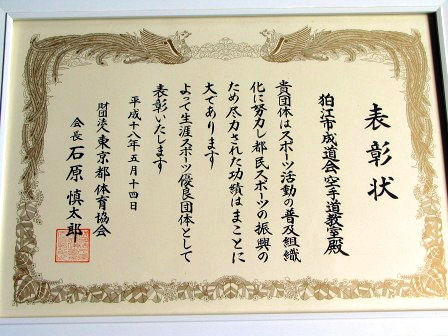 表彰状
狛江市成道会空手道教室殿
貴団体はスポーツ活動の普及組織
化に努力し都民スポーツの振興の
ため尽力された功績はまことに
大であります
よって生涯スポーツ優良団体として
表彰いたします
平成十八年五月十四日
財団法人東京都体育協会
会長石原慎太郎